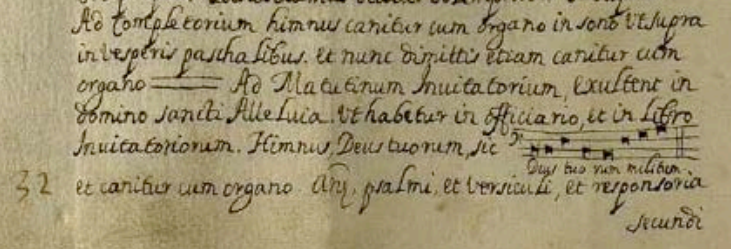 Ad Completorium himnus canitur cum organo in sono vt supra
in vesperis paschalibus. et nunc dimittis etiam canitur cum
organo Ad Matutinum Inuitatorium, Exultent in
domino sancti Alleluia. Vt habetur in officiario, et in Libro
Inuitatoriorum. Himnus, Deus tuorum, sic
Deus tuo rum militum.
32 et canitur cum organo. Añ, psalmi, et versiculi, et responsoria
secundi